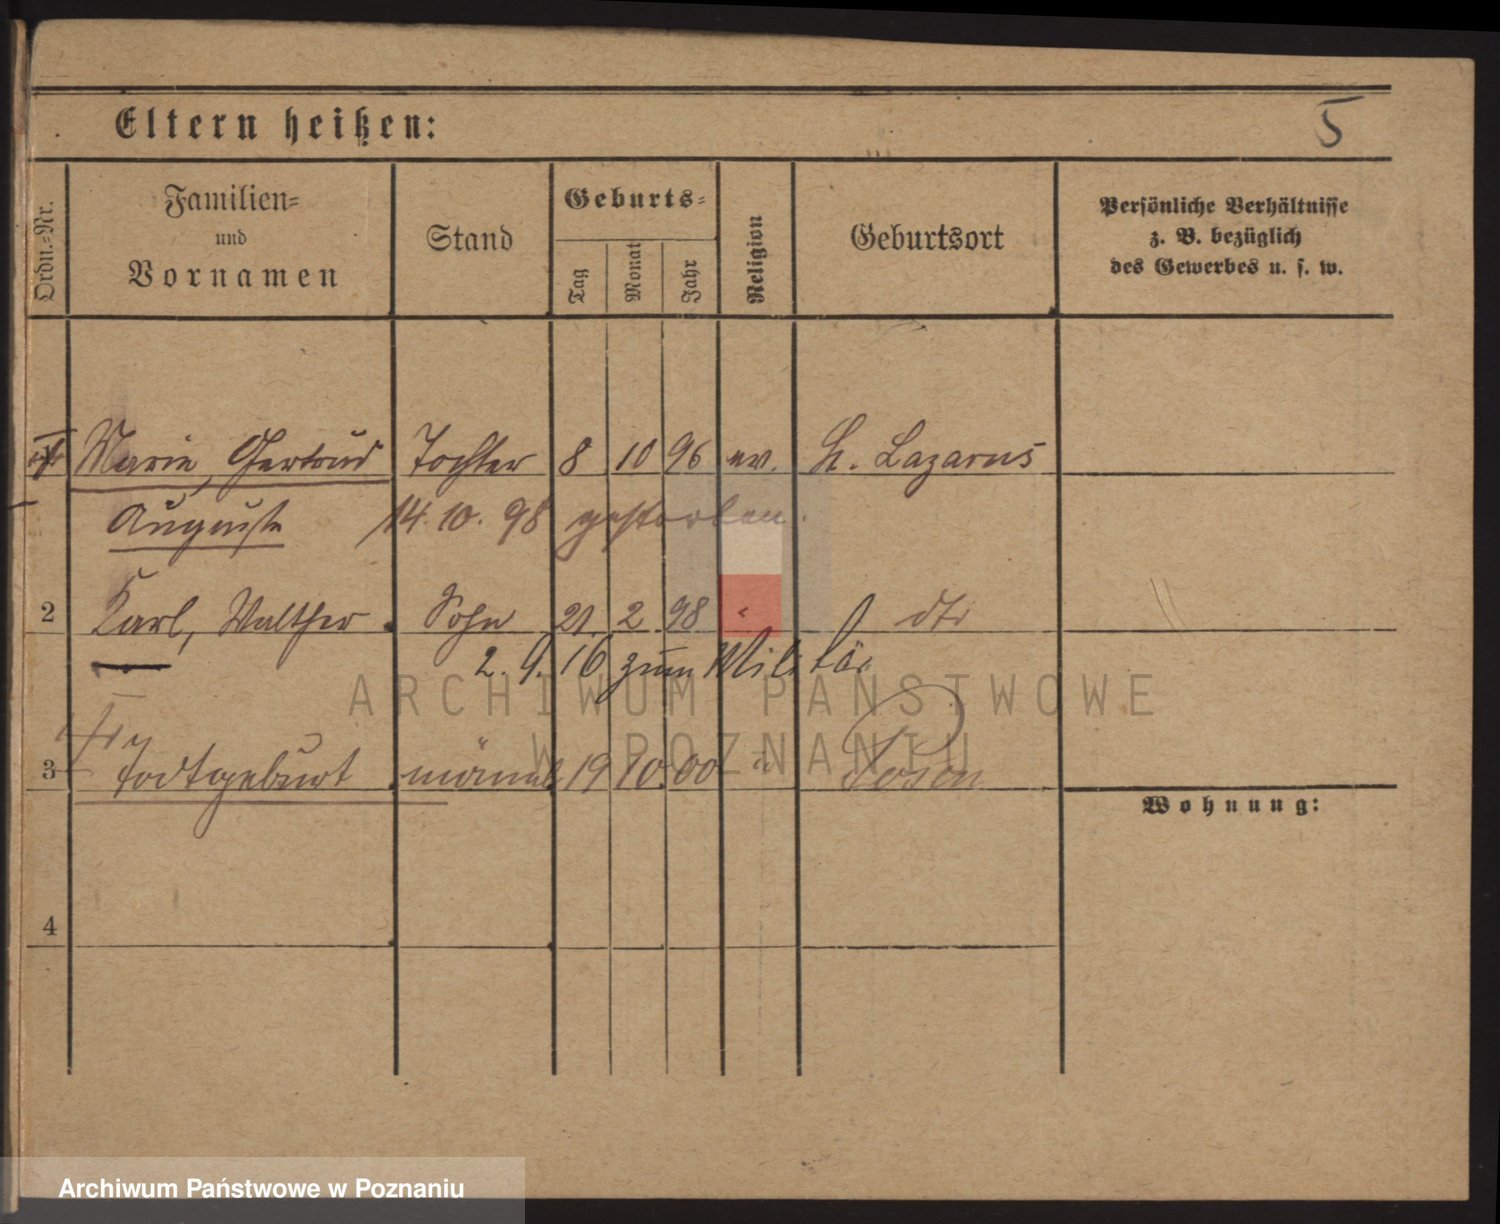 Eltern heißen:
5
Ordn.=Nr.
Familien=
und
Vornamen
Stand
Geburts=
Tag
Monat
Jahr
Religion
Geburtsort
Persönliche Verhältnisse
z. B. bezüglich
des Gewerbes u. s. w.
Marie, Gertrud Tochter 8 10 96 ev. St. Lazarus
Auguste 14. 10. 98 gestorben.
2 Karl, Walther Sohn 21. 2 98 " dto
2. 9. 16 zum Militär
3 Todtgeburt männl 19 10. 00 " Posen
Wohnung:
4
ARCHIWUM PAŃSTWOWE
W POZNANIU
Archiwum Państwowe w Poznaniu